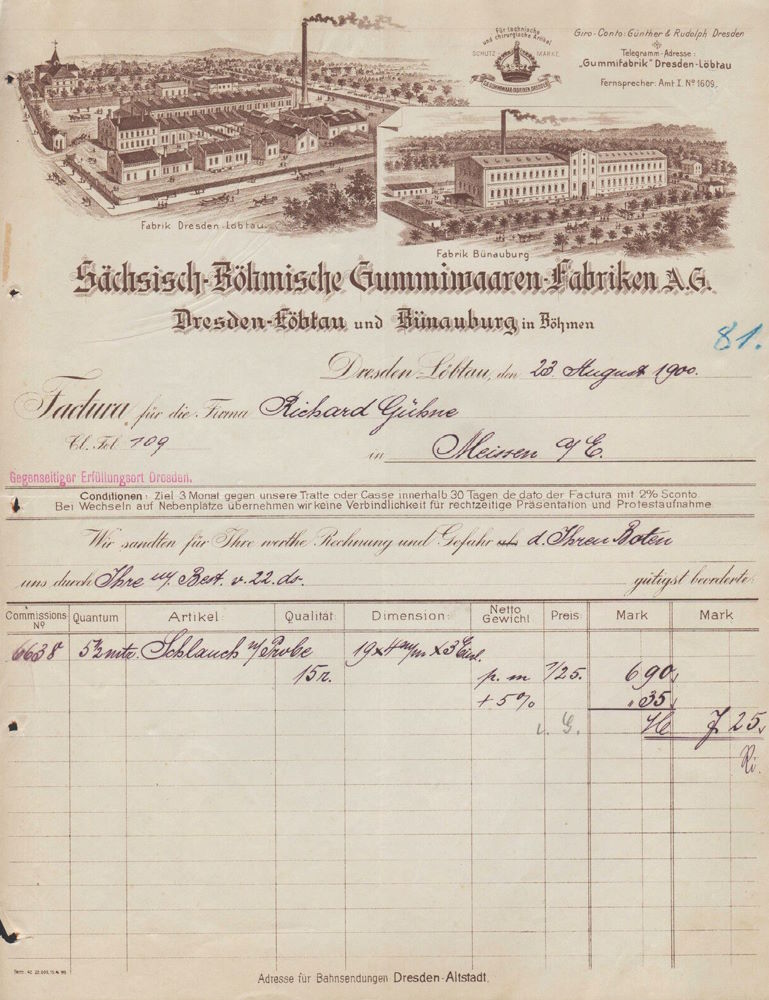 Für technische
und chirurgische Artikel
SCHUTZ MARKE.
Giro-Conto: Günther & Rudolph Dresden
Telegramm-Adresse:
„Gummifabrik" Dresden-Löbtau
Fernsprecher: Amt I. No 1609.
Fabrik Dresden-Löbtau.
Fabrik Bünauburg
Sächsisch-Böhmische Gummiwaaren-Fabriken A.G.
Dresden-Löbtau und Bünauburg in Böhmen
81.
Dresden-Löbtau, den 23. August 1900.
Factura für die Firma Richard Gühne
Cl. Fol. 109 in Meissen a/E.
Gegenseitiger Erfüllungsort Dresden.
Conditionen: Ziel 3 Monat gegen unsere Tratte oder Casse innerhalb 30 Tagen de dato der Factura mit 2% Sconto
Bei Wechseln auf Nebenplätze übernehmen wir keine Verbindlichkeit für rechtzeitige Präsentation und Protestaufnahme
Wir sandten für Ihre werthe Rechnung und Gefahr d. Ihren Boten
uns durch Ihre Best. v. 22. ds. gütigst beorderte:
Commissions No Quantum Artikel Qualität Dimension: Netto Gewicht Preis Mark Mark
6638 Schlauch n/Probe 19x4 m/m x 3
15r. p. m 7/25. 690
+ 5% 35
M 7 25
Ri.
Adresse für Bahnsendungen Dresden-Altstadt.